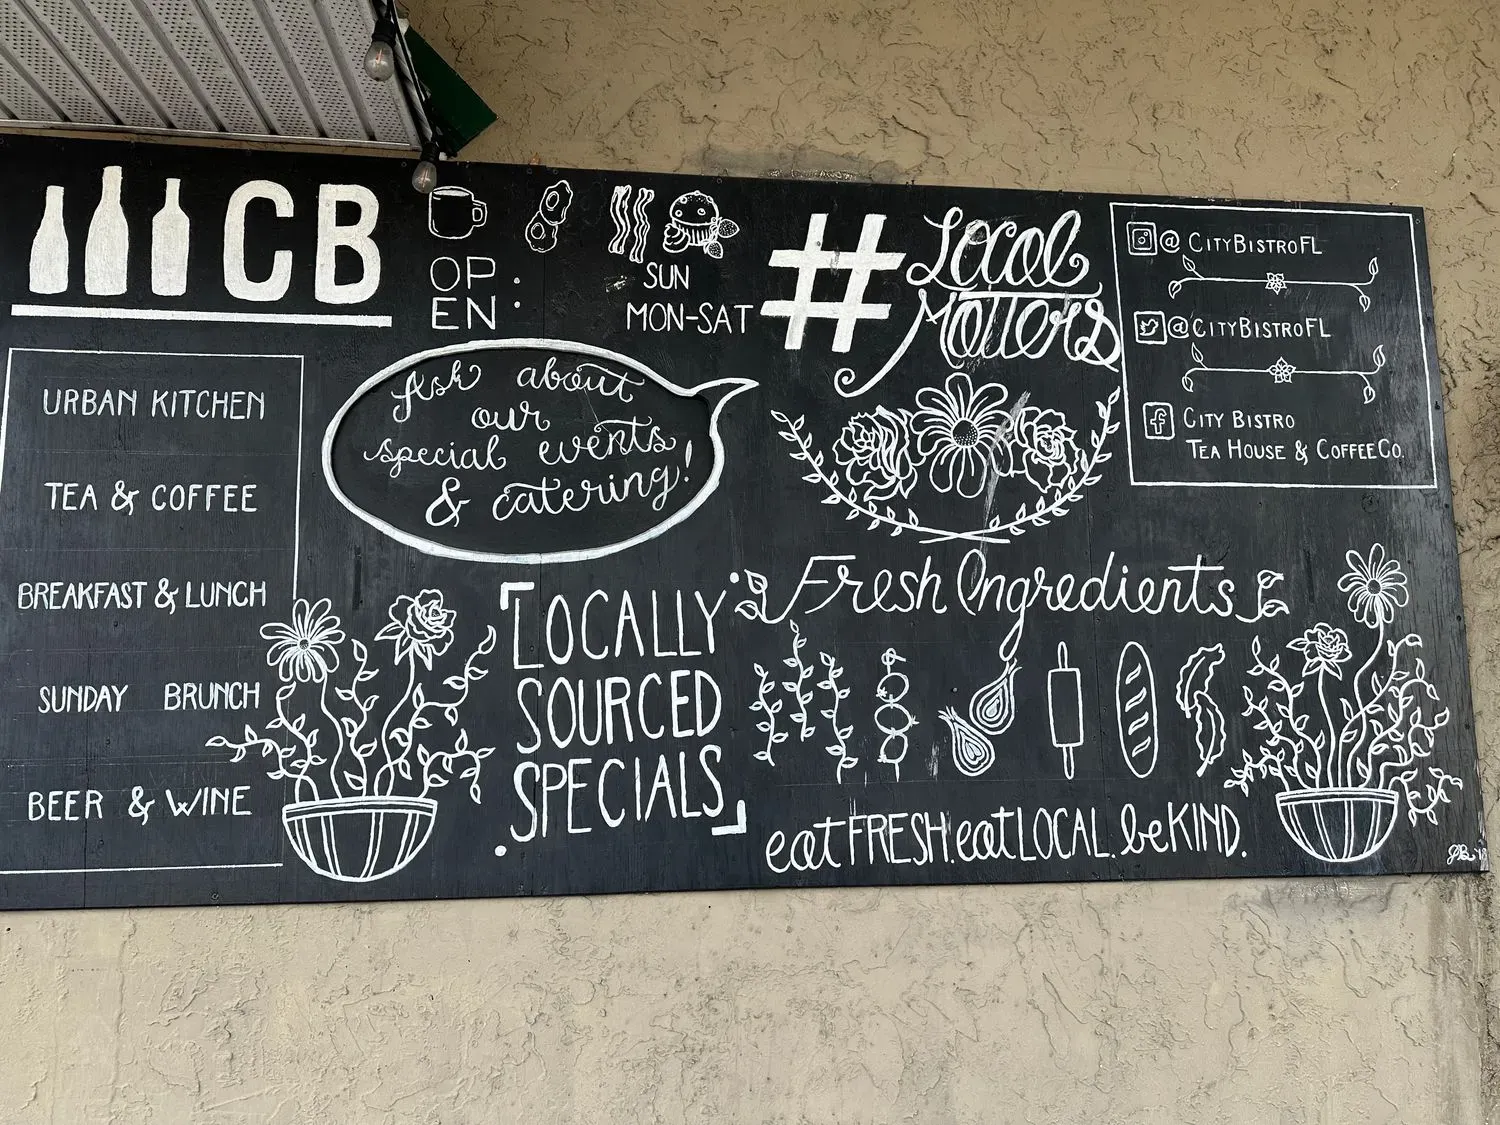 CB
OP
EN:
SUN
MON-SAT
# Local
Matters
@ CITYBISTROFL
@CITYBISTROFL
f CITY BISTRO
TEA HOUSE & COFFEE CO.
URBAN KITCHEN
TEA & COFFEE
BREAKFAST & LUNCH
SUNDAY BRUNCH
BEER & WINE
Ask about
our
special events
& catering!
LOCALLY
SOURCED
SPECIALS
Fresh Ingredients
eat FRESH. eat LOCAL. be KIND.